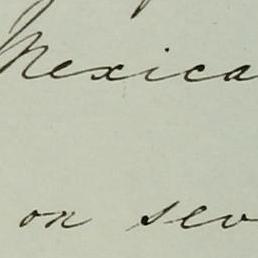 Mexica
on sev